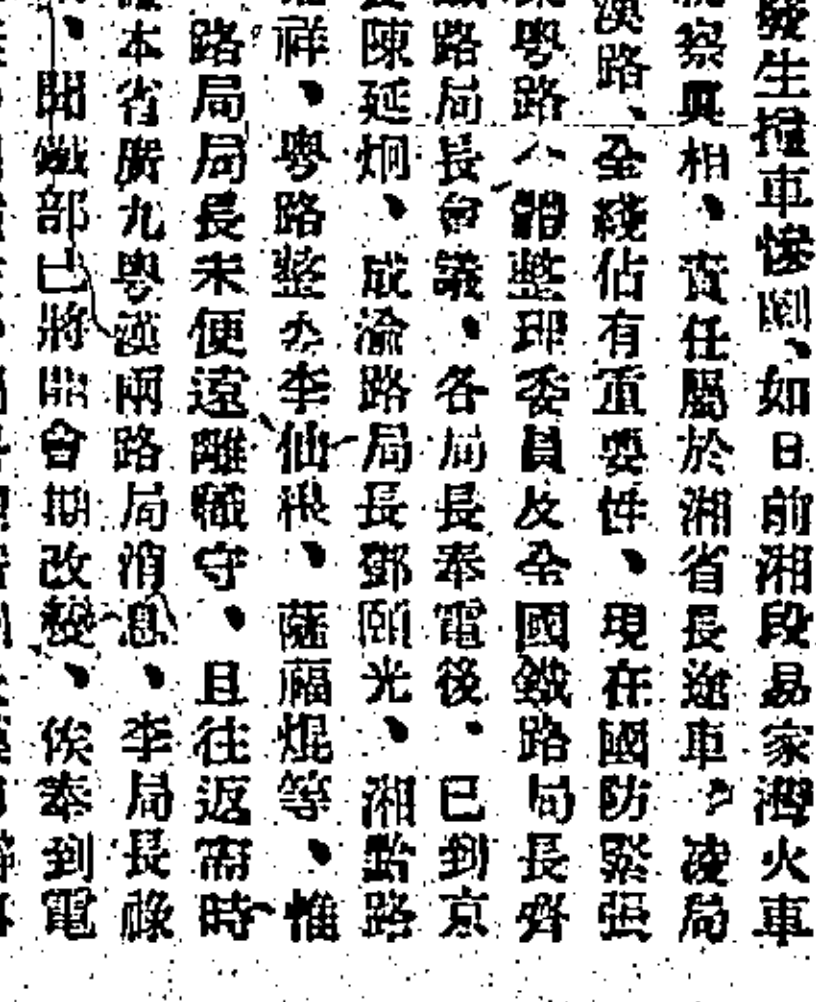 發生撞車慘劇、如日前湘段易家灣火車
察眞相、責任屬於湘省長途車、凌局
漢路、全綫佔有重要性、現在國防緊張
粵路、體整理委員及全國鐵路局長齊
路局長會議、各局長奉電後、已到京
陳延炯、成渝路局長鄧頤光、湘黔路
祥、粵路整委李仙根、薩福焜等、惟
路局局長未便遠離職守、且往返需時
本省廣九粵漢兩路局消息、李局長祿
、聞鐵部已將開會期改變、俟奉到電